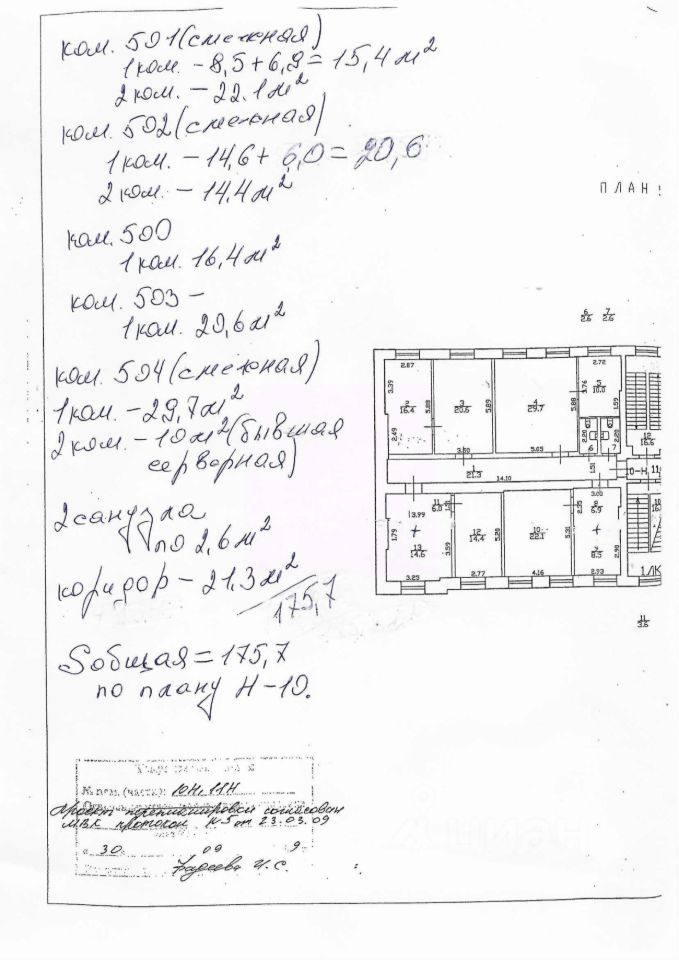 ком. 501 (смежная)
1 ком. - 8,5 + 6,9 = 15,4 м²
2 ком. - 22.1 м²
ком. 502 (смежная)
1 ком. - 14,6 + 6,0 = 20,6
2 ком. - 14.4 м²
ПЛАН
ком. 500
1 ком. 16,4 м²
ком. 503 -
1 ком. 20,6 м²
ком. 504 (смежная)
1 ком. - 29,7 м²
2 ком. - 10 м² (бывшая
серверная)
2 санузла
по 2,6 м²
коридор - 21,3 м²
175,7
Sобщая = 175,7
по плану Н-10.
6 7
2.6 2.6
2.87 2.72
3.39 2 16.4 5.88 3 20.6 5.89 4 29.7 5.88 3.76 5 10.0 1.59
2.49 3.50 5.05 2.20 6 7 2.20
12
16.6
1 21.3 14.10 1.51 10-Н 11
3.00
13.99 11 6.0 8 6.9 2.35
1.79 13 14.6 3.59 12 14.4 5.20 10 22.1 5.31 9 8.5 2.90
3.25 2.77 4.16 2.93
1/ЛК
11
3.6
№ пом. (части): 10Н, 11Н
Проект перепланировки согласован
МВК протокол №5 от 23.03.09
« 30 09 9
Фадеева И.С.